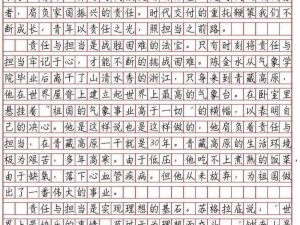 者，肩负家国振兴的责任。时代交付的重托鞭策我们不
断成长，青年以责任之光，照担当之前路。
责任与担当是战胜困难的法宝。只有时刻将责任与
担当牢记于心，才能不断的挑战困难。陈金水从气象学
院毕业后离开了山清水秀的浙江，只身来到青藏高原，
他在世界屋脊上建立起世界上最高的气象台。在卧室里
悬挂着“祖国的气象事业高于一切”的横幅，以表明自
己的决心。他是这样说也是这样做的，他肩负着责任与
担当，在青藏高原一干就是30年。青藏高原的生活环境
极为艰苦，多年高寒。由于低压，他吃不上煮熟的饭菜
由于缺氧，落下心血管疾病。但他从未放弃，为祖国做
出了一番伟大的事业。
责任与担当是实现理想的基石。苏格拉底说，“世